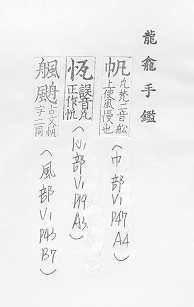 龍龕手鑑
帆 凡梵二音船上使風幔也
(巾部V1 P47 A4)
㤆 誤音凡正作帆
(心部V1 P19 A3)
颿 古文帆字二同
(風部V1 P43 B7)